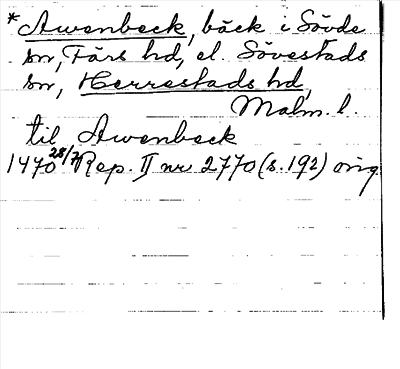 *Awenbeck, bäck i Sövde
sn, Färs hd, el. Sövestads
sn, Herrestads hd,
Malm. l.
til Awenbeck
1470 28/7 Rep. II nr 2770 (s. 192) orig